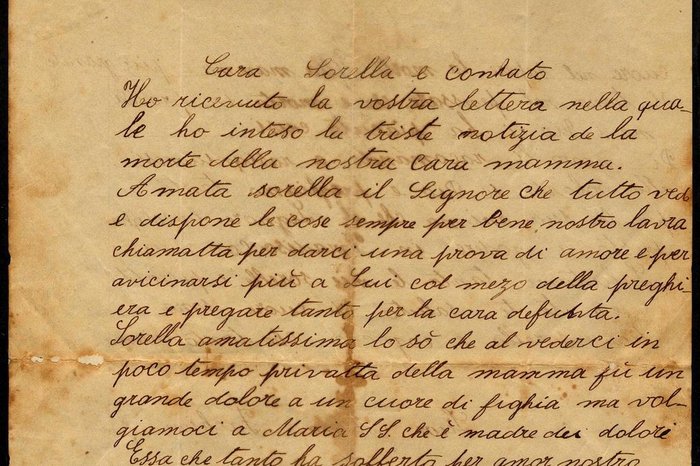 Cara Sorella e contato
Ho ricevuto la vostra lettera nella qua-
le ho inteso la triste notizia de la
morte della nostra cara mamma.
Amata sorella il Signore che tutto ved
e dispone le cose sempre per bene nostro lavra
chiamatta per darci una prova di amore e per
avicinarsi più a Lui col mezo della preghi
era e pregare tanto per la cara defunta.
Sorella amatissima lo sò che al vederci in
poco tempo privatta della mamma fù un
grande dolore a un cuore di fighia ma vol-
giamoci a Maria SS. che è madre dei dolori
Essa che tanto ha sofferto per amor nostro